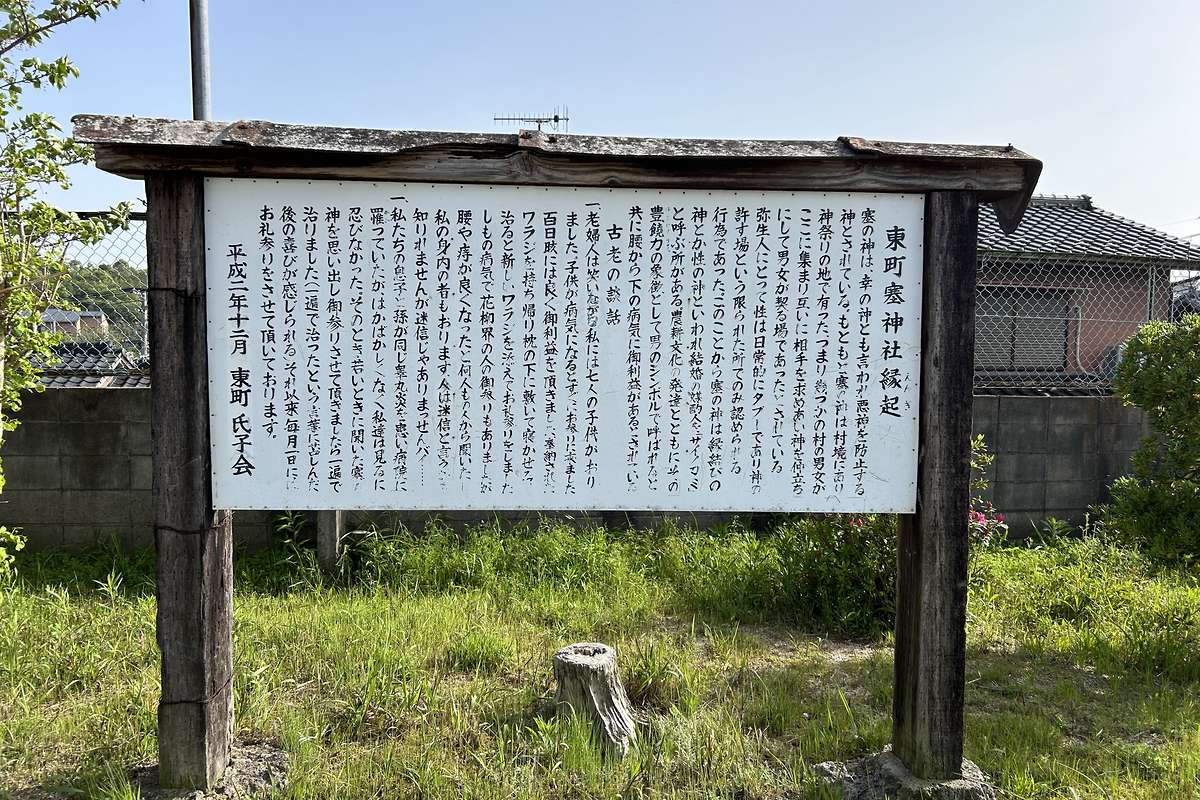 東町塞神社縁起
えんぎ
塞の神は、幸の神とも言われ悪神を防止する
神とされている。もともと塞の神は村境にあり
神祭りの地で有ったつまり幾つかの村の男女が
ここに集まり互いに相手を求めあい神を仲立ち
にして男女が契る場であったとされている
弥生人にとって性は日常的にタブーであり神の
許す場という限られた所でのみ認められる
行為であったこのことから塞の神は縁結びの
神とか性の神といわれ結婚の媒酌をサイノカミ
と呼ぶ所がある農耕文化の発達とともに此の
豊饒力の象徴として男のシンボルで呼ばれると
共に腰から下の病気に御利益があるとされている
古老の談話
一、老婦人は笑いながら私には七人の子供がおり
ました子供が病気になるとすぐにお参りに来ました
百日咳には良く御利益を頂きました奉納された
ワラジを一つ持ち帰り枕の下に敷いて寝かせると
治ると新しいワラジを添えてお礼参りをしました
しもの病気で花柳界の人の御参りもありましたが
腰や痔が良くなったと何人もの人から聞いたし
私の身内の者もおります人は迷信と言うかも
知れませんが迷信じゃありませんバ……
一、私たちの息子と孫が同じ睾丸炎を患い病院に
罹っていたがはかばかしくなく私達は見るに
忍びなかった、そのとき若いときに聞いた塞の
神を思い出し御参りさせて頂きましたら一遍で
治りました（一遍で治ったという言葉に苦しんだ
後の喜びが感じられる）それ以来毎月一日には
お礼参りをさせて頂いております。
平成二年十二月 東町 氏子会